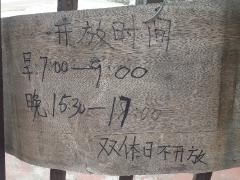 开放时间
早7:00—9:00
晚15:30—17:00
双休日不开放